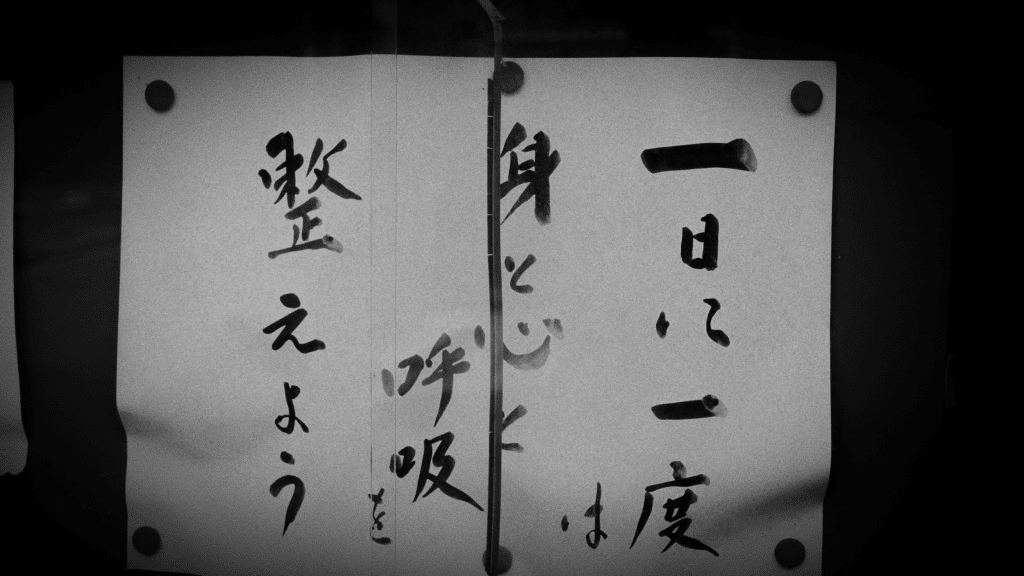 一日に一度は
身と心と
呼吸を
整えよう